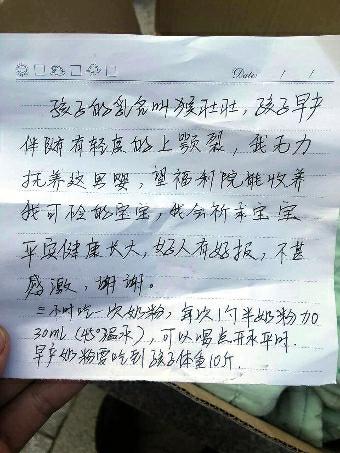 Date: / /
孩子的乳名叫猴壮壮，孩子早产
伴随有轻度的上颚裂，我无力
抚养这男婴，望福利院能收养
我可怜的宝宝，我会祈求宝宝
平安健康长大，好人有好报，不甚
感激，谢谢。
三小时吃一次奶粉，每次1勺半奶粉加
30mL(45°温水)，可以喝点开水平时.
早产奶粉要吃到孩子体重10斤.